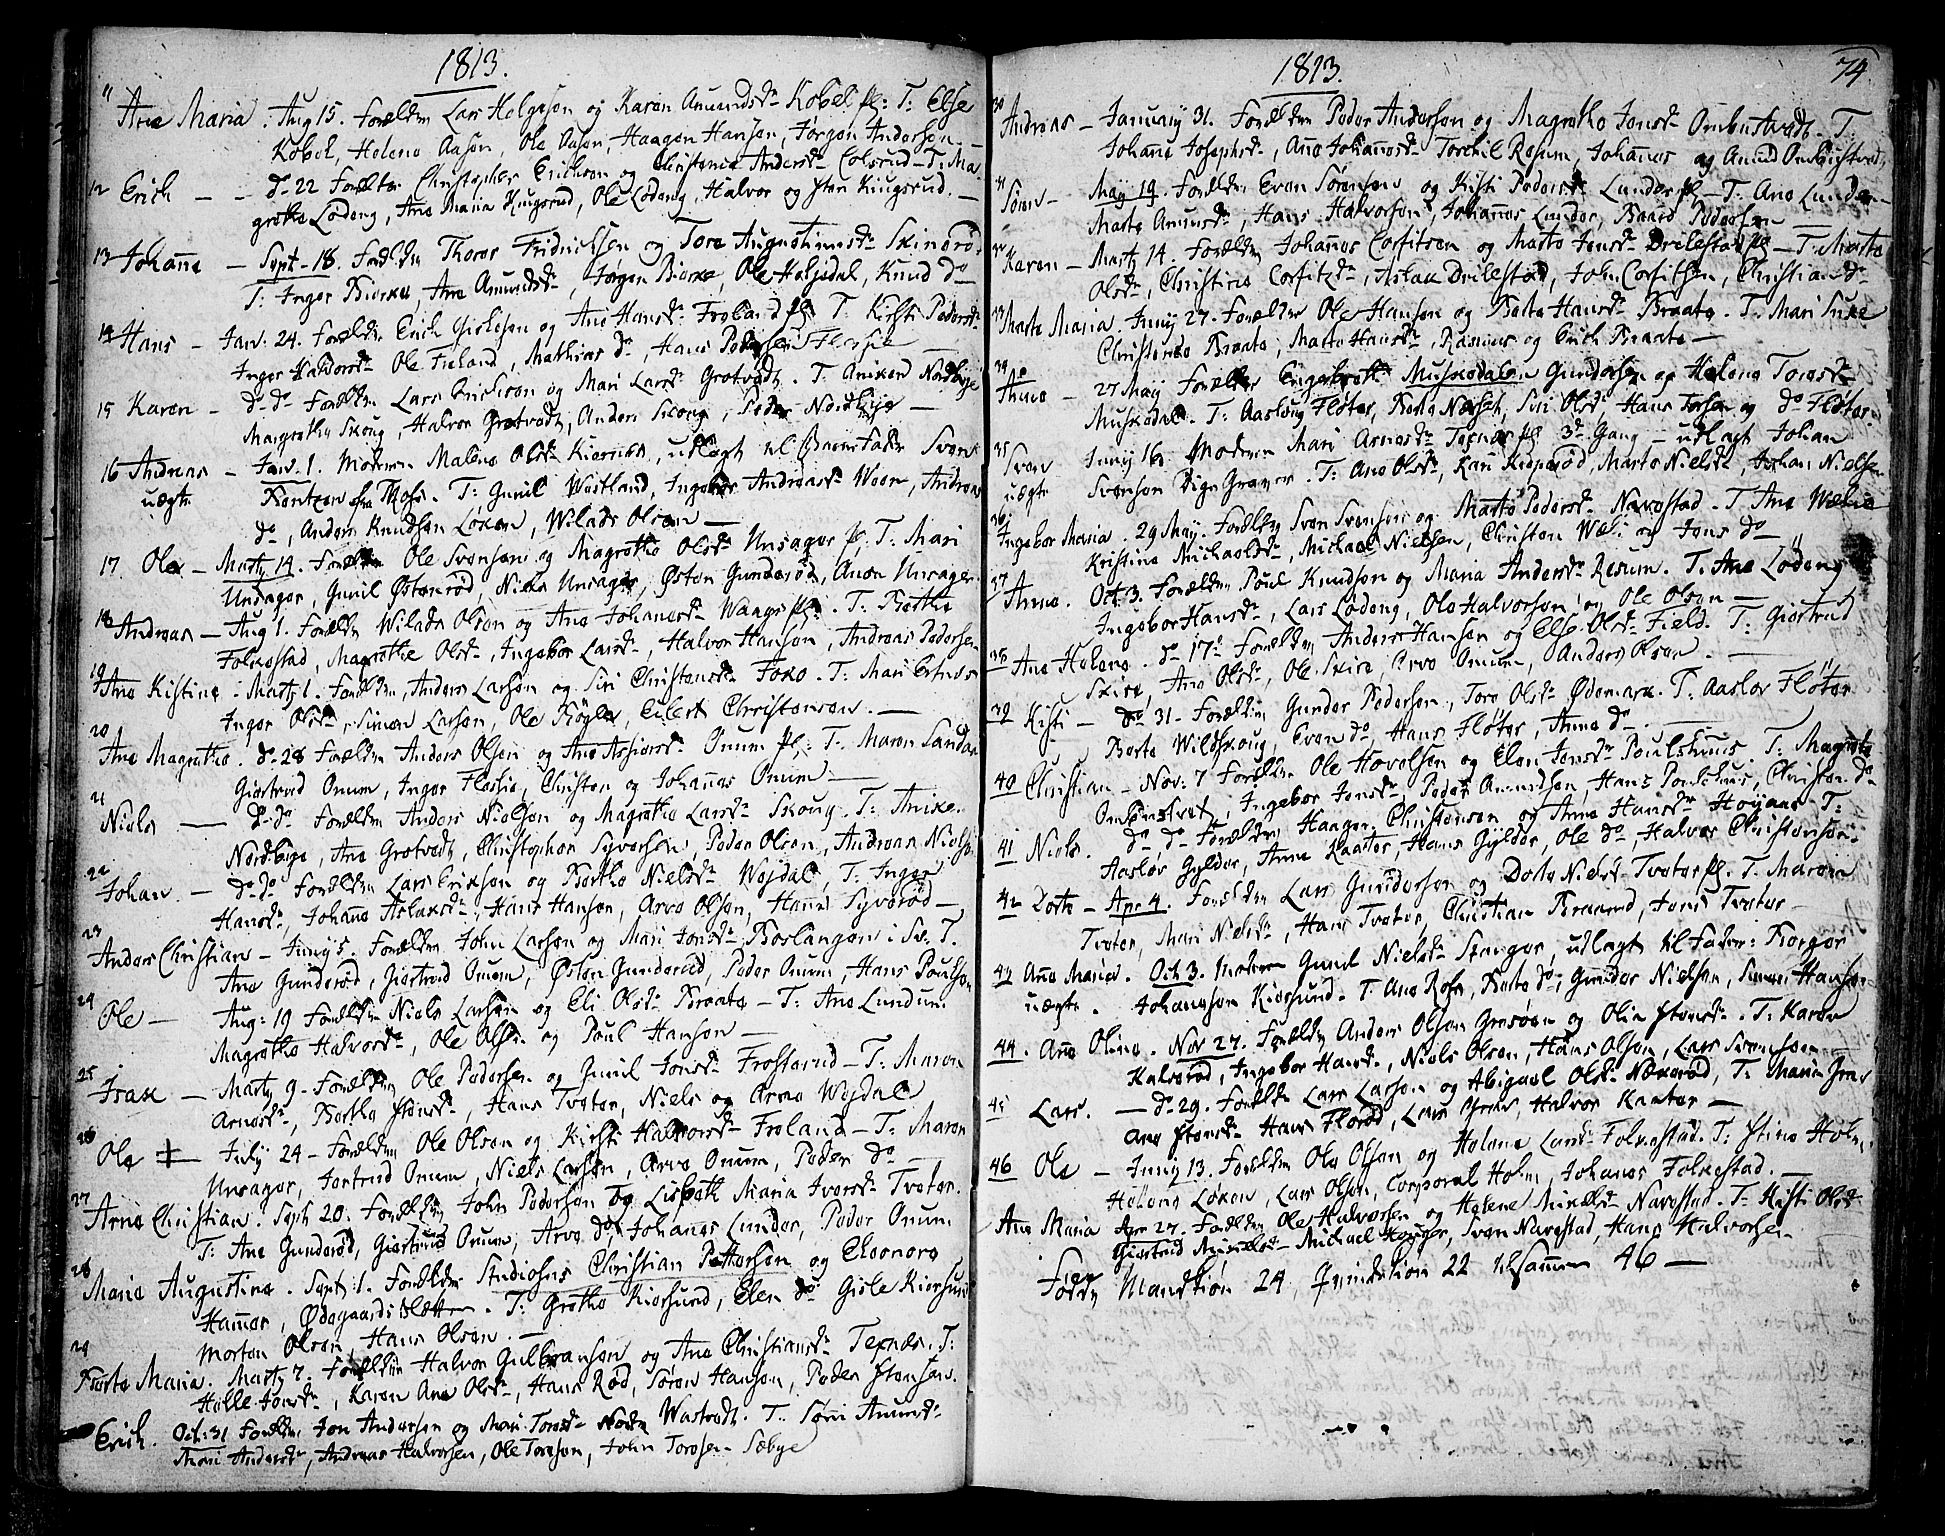 1813.
11 Ane Maria. Aug 15. Forældre Lars Helgeson og Karen Amundsdr Kobel pl: T: Else
Kobel, Helene Aasen, Ole Aasen, Haagen Hansen, Jørgen Andersen. —
12 Erich — — do 22 Forældre Christopher Erickson og Christence Andersdr Colsrud — T: Ma
grethe Lødeng, Ane Maria Kingsrud, Ole Lødeng, Halvor og Iver Kingsrud. —
13 Johañe — Sept — 18. Foræld Thore Fridricksen og Tore Augustinusdr Skinerø
T: Inger Biørke, Ane Amundsdr, Jørgen Biørke, Ole Holsdal, Knud do
14 Hans — Jan: 24. Forældre Erich Gislesen og Ane Hansdr Froland pl T. Kirsti Pedersdr
Inger Halvorsdr Ole Froland, Mathias do, Hans Pedersen Flessie —
15 Karen — do do Forældre Lars Erickson og Mari Larsdr Grotvedt. T. Aniken Nordbye
Margrethe Skoug, Halvor Grotvedt, Anders Skoug, Peder Nordbye —
16 Andreas — Jan. 1. Moderen Malene Olsdr Kiernes, udlagt til Barnefader Svend
uægte Bentzen fra Moss. T: Gunil Westland, Ingebor Andreasdr Woen, Andreas
do, Anders Knudsen Løken, Wilads Olsen —
17. Ole — Marty 14. Forældre Ole Svensen og Magrethe Olsdr Unsager pl, T: Mari
Unsager, Gunil Østenrød, Niels Unsager, Østen Gunderød, Anon Unsager
18 Andreas — Aug 1. Forældre Wilads Olsen og Ane Johanesdr Waager pl. T: Berthe
Folkestad, Magrethe Olsdr, Ingebor Larsdr, Halvor Hanson, Andreas Pedersen
19 Ane Kistine : Marty 1. Forældre, Anders Larsen og Siri Christensdr Foxe. T: Mari
Inger Olsdr, Simon Larson, Ole Bøgler, Eilert Christensen. —
20
Ane Magrethe. do 28 Forældre Anders Olsen og Ane Asbiørsdr Onum pl: T: Maren Sandaa
Giertrud Onum, Inger Flessie, Christen og Johañes Onum —
21
Niels — do do Forældre Anders Nielson og Magrethe Larsdr Skoug. T: Anike
Nordbye, Ane Grotvedt, Christopher Syversen, Peder Olsen, Andreas Nielsen
22
Johan. — do do Forældre Lars Erikson og Berthe Nielsdr Wojdal, T: Inger
Hansdr, Johañe Aslaksdr, Hans Hansen, Arve Olson, Hans Syverød —
23
Anders Christian — Juny 5. Forældre John Larson og Mari Jonsdr Boslangen i Sv. T.
Ane Gunderød, Giertrud Onum, Østen Gunderød, Peder Onum, Hans Poulsen
24
Ole — Aug: 19 Forældre Niels Larsen og Eli Olsdr Braate — T: Ane Lundum
Magrethe Halvorsdr, Ole Olsen og Poul Hanson —
25
Isak — Marty 9 — Forældre Ole Pedersen og Gunil Jonsdr Frosserud — T: Maren
Arnesdr, Berthe Stensdr, Hans Tveter, Niels og Arne Wojdal
26
Ole ‡ — July 24 — Forældre Ole Olson og Kirsti Halvorsdr Froland — T: Maren
Unsager, Jertrud Onum, Niels Larsen, Arve Onum, Peder do —
27
Arne Christian. Sept 20. Forældre John Pedersen og Lisbeth Maria Iversdr Tveter.
T: Ane Gunderød, Giertrud Onum, Arve do, Johanes Lunder, Peder Onum
28
Maria Augustine. Sept 1. Forældre Studiosus Christian Pettersen og Eleonora
Hamer, Ødegaards Slætten. T: Grethe Kiersund, Elen do Gisle Kiersund
Morten Olson, Hans Olson. —
29
Berte Maria. Marty 7. Forældre Halvor Gulbransen og Ane Christiansdr Texnes. T:
Helle Jonsdr, Karen Ane Olsdr, Hans Rød, Søren Hansen, Peder Stensen.
Erich. Oct: 31 Forældre Jon Andersen og Mari Toresdr Wastvedt. T: Siri Amundsdr
Mari Andersdr, Andreas Halvorsen, Ole Toreson, John Toresen Sæbye
1813.
74
30
Andreas — January 31. Forældre Peder Anderson og Magrethe Jonsdr Ombustvedt. T:
Johane Josephsdr, Ane Johañesdr Torchil Resum, Johañes og Amund Ombustvedt
31
Søren — May 19. Forældre Even Sørensen og Kisti Pedersdr Lunder pl — T. Ane Lunder
Marte Amunsdr, Hans Halvorsen, Johañes Lunder, Baard Pedersen
32
Karen — Marty 14. Forældre Johañes Corfitsen og Marte Jensdr Drilestad pl — T: Marte
Olsdr, Christine Corfitzdr, Aslak Drilestad, John Corfitsen, Christian do
33 Marte Maria. Juny 27. Forældre Ole Hanson og Berte Hansdr Braate. T. Mari
Christense Braate, Marte Hansdr, Rasmus og Erich Braate —
34
Añne — 27 May Forældre Engebreth Muskedalen Gundersen og Helene Toresdr
Muskedal. T: Aaslaug Fløter, Berte Næsset, Siri Olsdr, Hans Torsen og do Fløter.
35
Sven Juny 16. Moderen Mari Arnesdr Texnes pl 3de Gang — udlagt Johan
uægte Svenson Dige Graver. T: Ane Olsdr, Kari Kieperød, Marte Nielsdr, Johan Nielsen
36
Ingebor Maria. 29 May. Forældre Sven Svensen og Marte Pedersdr Navestad. T. Ane Wælie
Kristine Michaelsdr, Michael Nielsen, Christen Wæli og Jens do —
37
Anne. Oct 3. Forældre Poul Knudson og Maria Andersdr Resum. T. Ane Lødeng
Ingebor Hansdr, Lars Lødeng, Ole Halvorson og Ole Olson —
38 Ane Helene. do 17. Forældre Anders Hanson og Else Olsdr Field. T: Giertrud
Skire, Ane Olsdr, Ole Skire, Arve Onum, Anders Olsen. —
39 Kisti — do 31 — Forældre Gunder Pedersen, Tore Olsdr Ødemark. T: Aaslov Fløter
Berte Wildskoug, Even do, Hans Fløter, Anne do —
40 Christian — Nov: 7 Forældre Ole Hovelsen og Elen Jensdr Poulshuus. T: Magrete
Ombustvet, Ingebor Jensdr, Peder Amundsen, Hans Poulshuus, Christen do
41 Niels. do do Forældre Haagen Christensen og Anne Hansdr Høyaas — T:
Aasløv Gylder, Anne Kaater, Hans Gylder, Ole do, Halvor Christensen.
42 Dorte — Apr 4. Forældre Lars Gundersen og Dorte Nielsdr Tveter pl. T. Maren
Tveter, Mari Nielsdr, Hans Tveter, Christian Braarud, Jens Tveter
43 Ane Maria. Oct 3. Moderen Gunil Nielsdr Stanger, udlagt til Fader: Børger
uægte. Johansson Kiersund. T. Ane Rose, Berte do, Gunder Nielsen, Simen Hanson
44. Ane Oline. Nov 27. Forældre Anders Olsen Græsøen og Olia Stensdr. T: Karen
Kalverød, Ingebor Hansdr, Niels Olson, Hans Olson, Lars Svenson —
45 Lars. — do 29. Forældre Lars Larsen og Abigael Olsdr Næxerød, T: Maria
Ane Stensdr Hans Florød, Lars, Halvor Kaater —
46 Ole — Juny 13. Forældre Ole Olson og Helene Larsdr Folkestad. T: Stine Holm,
Helene Løken, Lars Olson, Corporal Holm, Johanes Folkestad. —
Ane Maria Apr 27. Forældre Ole Halvorsen og Helene Mikelsdr Navestad. T: Kisti Olsdr
Giertrud Mikelsdr — Michael Houger, Sven Navestad, Hans Halvorsen.
Fødde Mandkiøn 24, Qvindekiøn 22 tilsammen 46 —